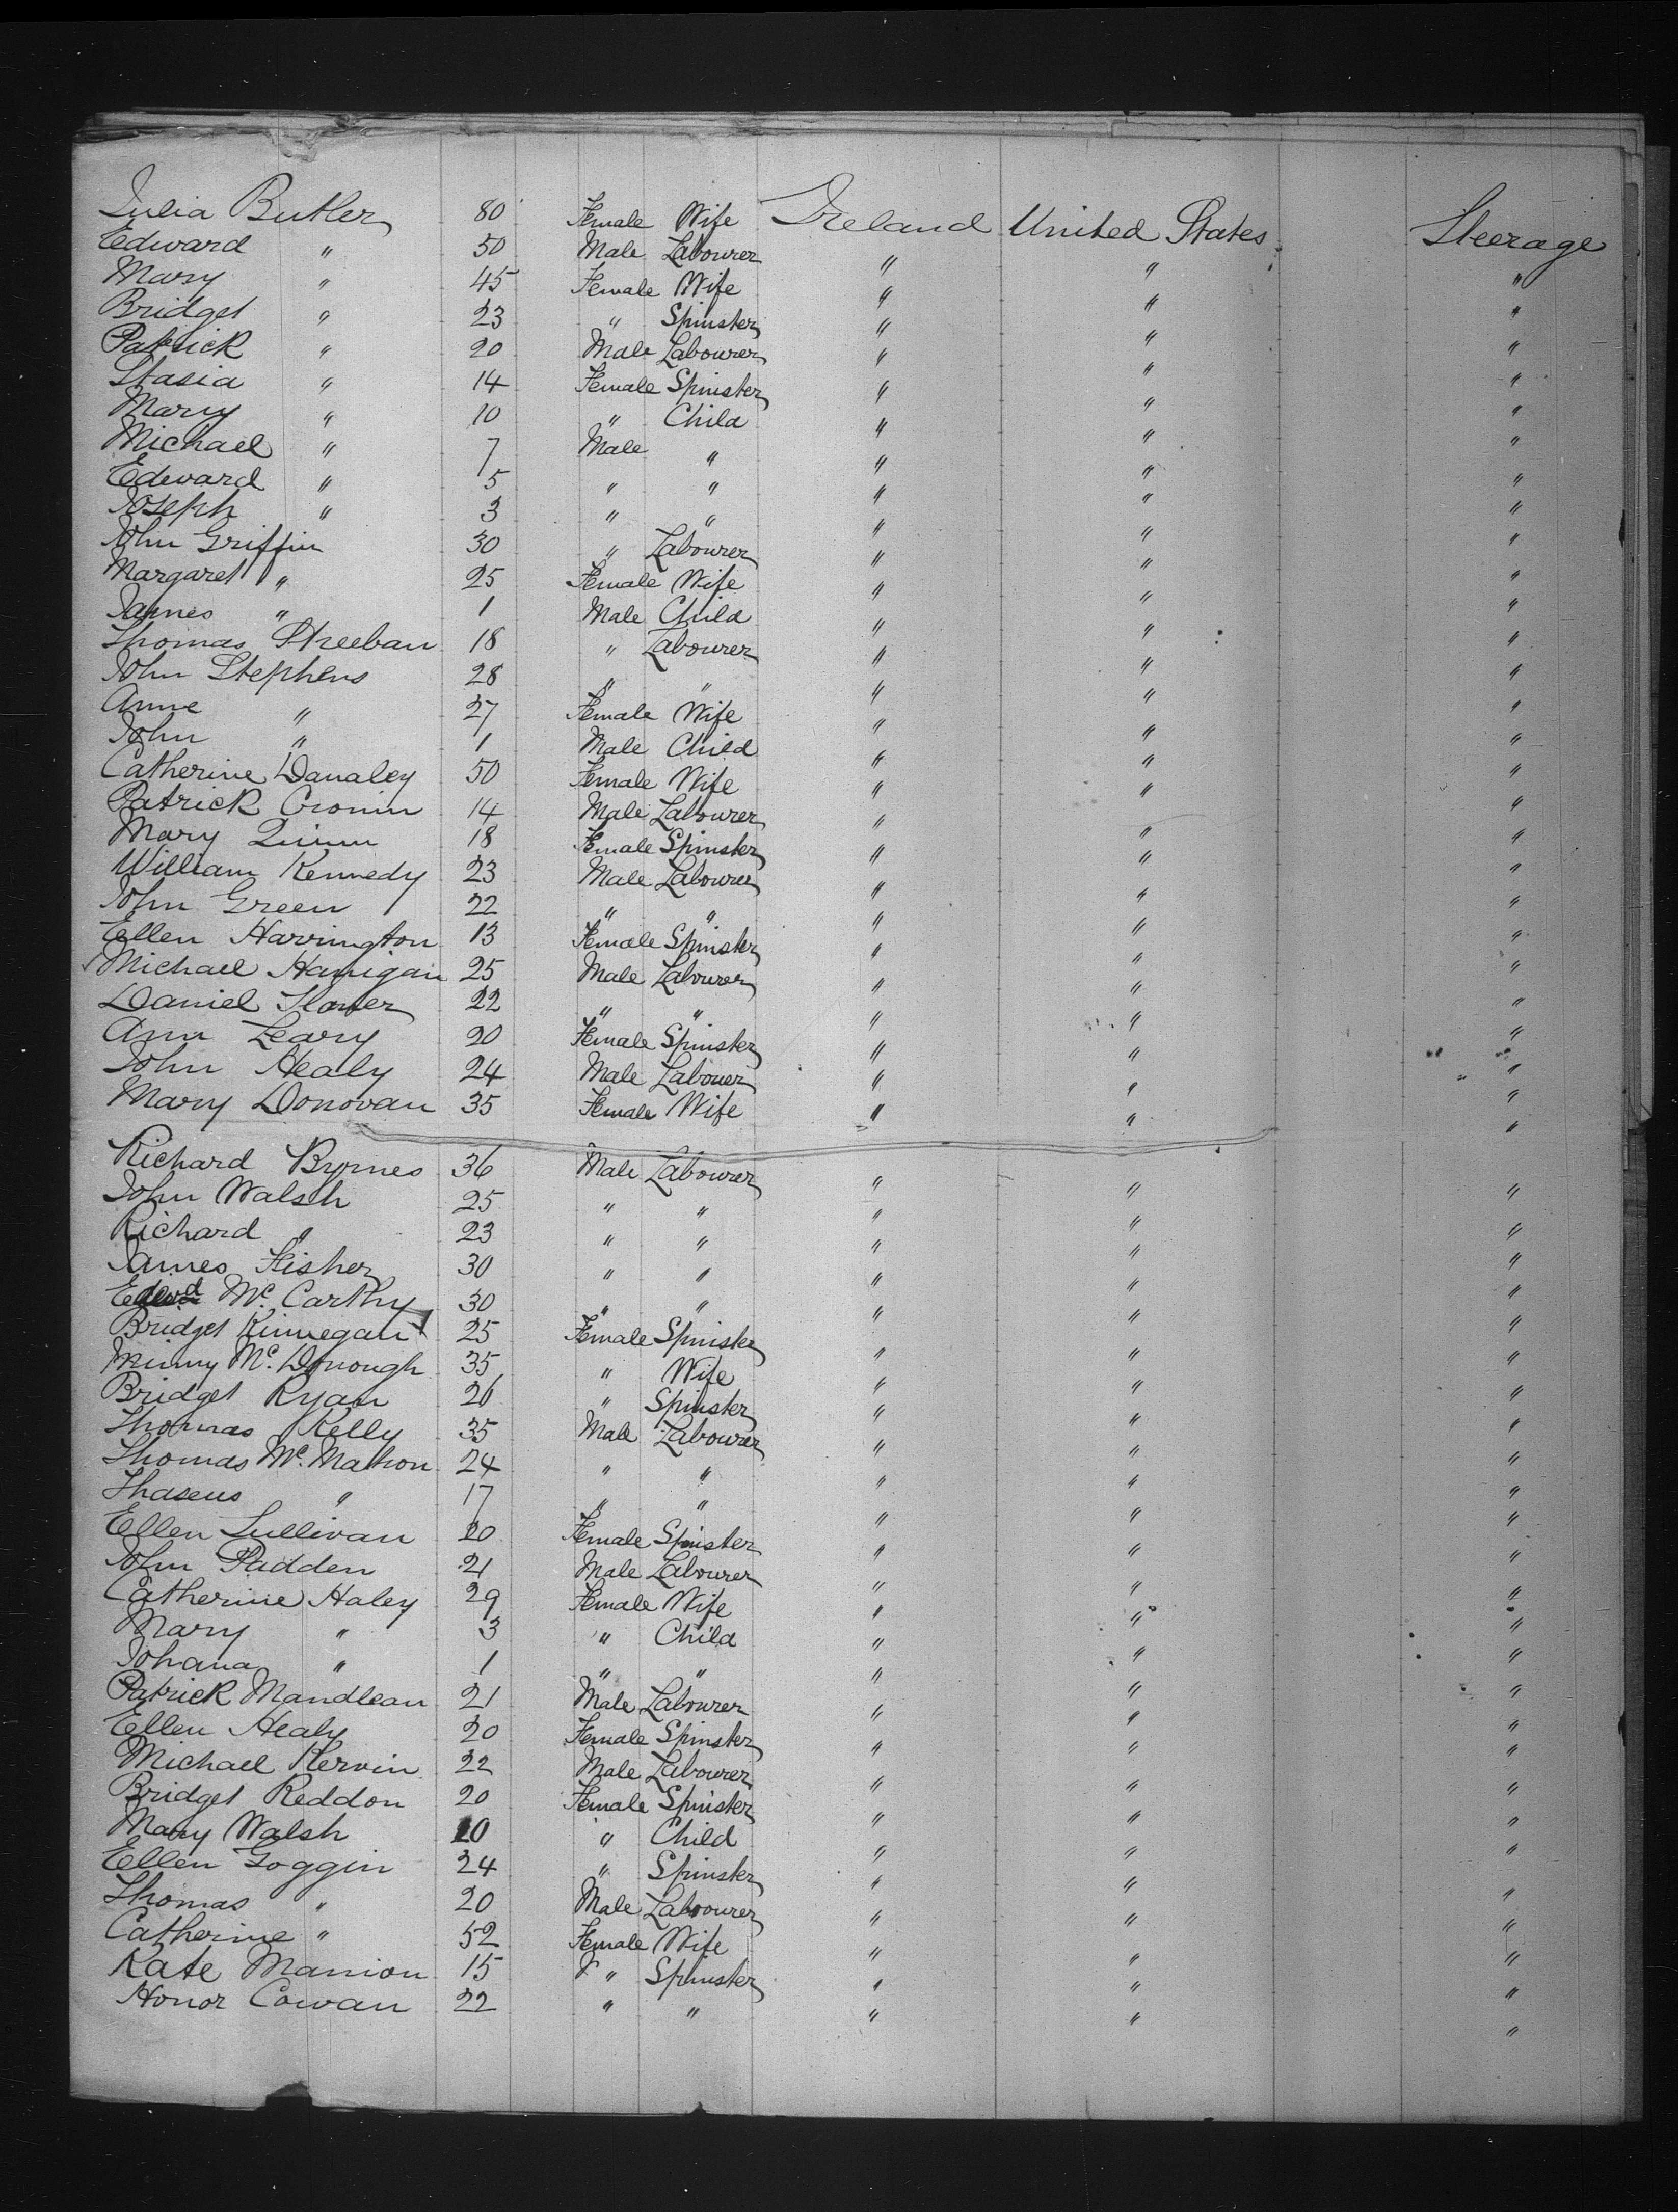 Julia Butler 80 Female Wife Ireland United States Steerage
Edward " 50 Male Labourer " " "
Mary " 45 Female Wife " " "
Bridget " 23 " Spinster " " "
Patrick " 20 Male Labourer " " "
Stasia " 14 Female Spinster " " "
Mary " 10 " Child " " "
Michael " 7 Male " " " "
Edward " 5 " " " " "
Joseph " 3 " " " " "
John Griffin 30 " Labourer " " "
Margaret " 25 Female Wife " " "
James " 1 Male Child " " "
Thomas 18 " Labourer " " "
John Stephens 28 " " " " "
Anne " 27 Female Wife " " "
John " 1 Male Child " " "
Catherine Danaley 50 Female Wife " " "
Patrick Cronin 14 Male Labourer " " "
Mary Quinn 18 Female Spinster " " "
William Kennedy 23 Male Labourer " " "
John Green 22 " " " " "
Ellen Harrington 13 Female Spinster " " "
Michael Hanigan 25 Male Labourer " " "
Daniel 22 " " " " "
Ann Leary 20 Female Spinster " " "
John Healy 24 Male Labouer " " "
Mary Donovan 35 Female Wife " " "
Richard Byrnes 36 Male Labourer " " "
John Walsh 25 " " " " "
Richard " 23 " " " " "
James Fisher 30 " " " " "
Edwd Mc. Carthy 30 " " " " "
Bridget Kinnegan 25 Female Spinster " " "
Mc. Donough 35 " Wife " " "
Bridget Ryan 26 " Spinster " " "
Thomas Kelly 35 Male Labourer " " "
Thomas Mc. Mahon 24 " " " " "
" 17 " " " " "
Ellen Sullivan 20 Female Spinster " " "
John Padden 21 Male Labourer " " "
Catherine Haley 29 Female Wife " " "
Mary " 3 " Child " " "
Johana " 1 " " " " "
Patrick Mandlean 21 Male Labourer " " "
Ellen Healy 20 Female Spinster " " "
Michael Kervin 22 Male Labourer " " "
Bridget Reddon 20 Female Spinster " " "
Mary Walsh 10 " Child " " "
Ellen Goggin 24 " Spinster " " "
Thomas " 20 Male Labourer " " "
Catherine " 52 Female Wife " " "
Kate Manion 15 " Spinster " " "
Honor Cowan 22 " " " " "